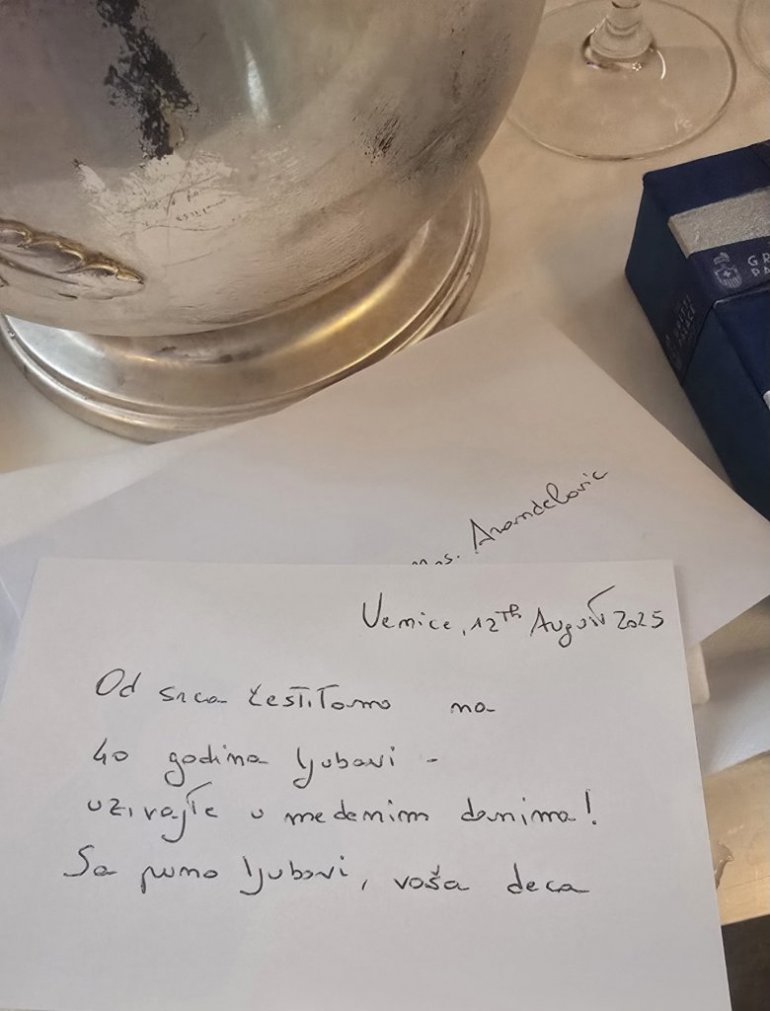 GR
PA
mrs. Arandelovic
Venice, 12Th August 2025
Od srca čestitamo na
40 godina ljubavi -
uzivajte u medenim danima!
Sa puno ljubavi, vaša deca